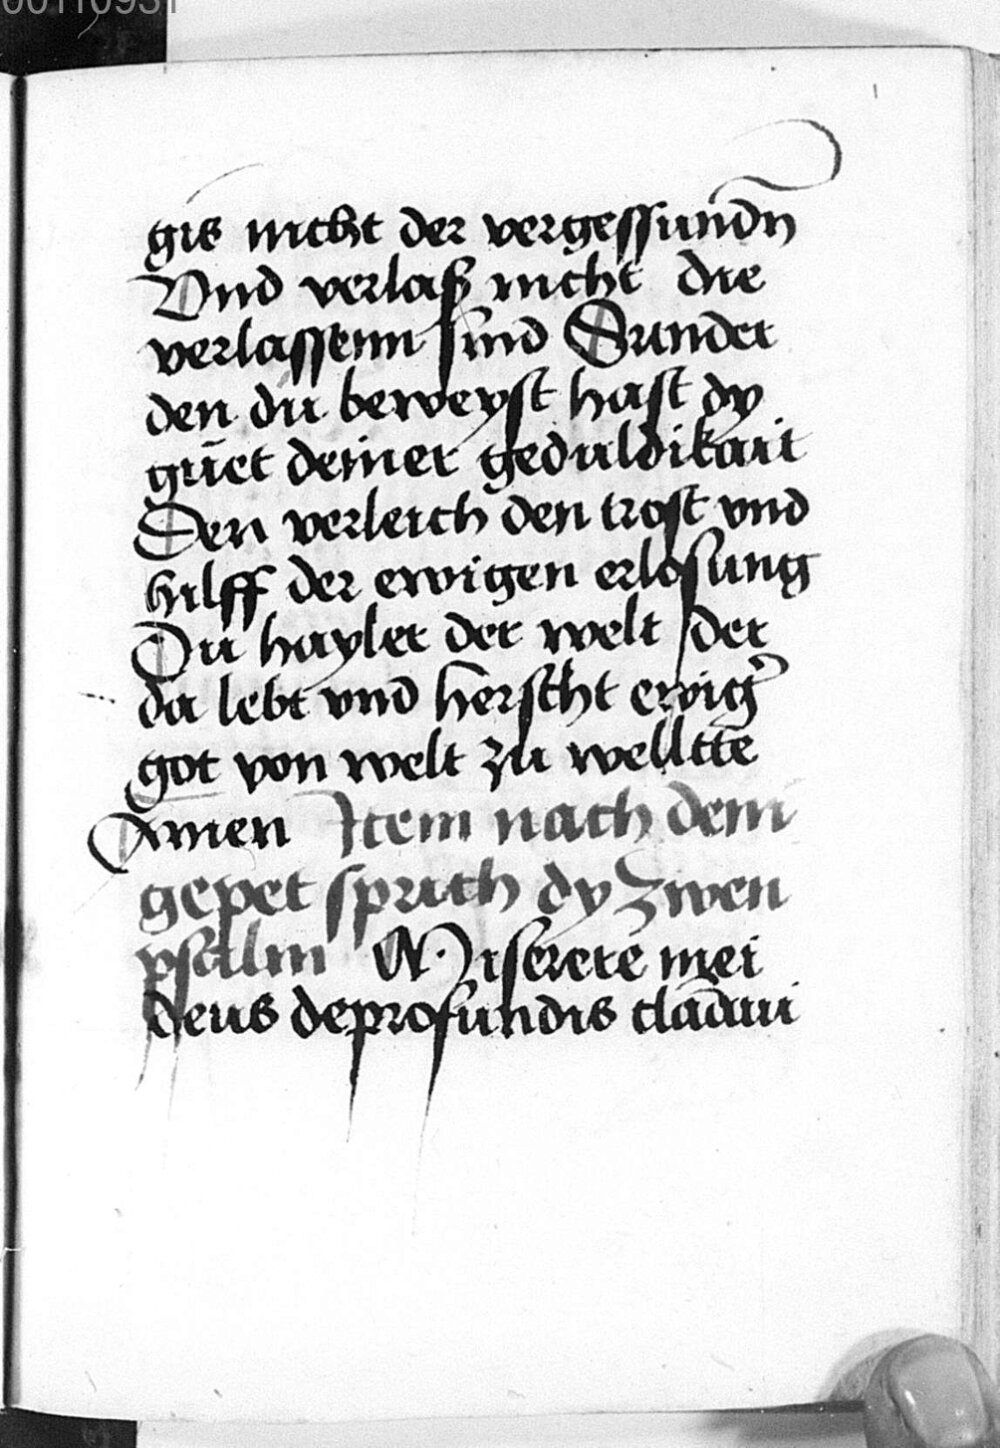 00110931
gis nicht der vergessund̄n
Vnd verlaß nicht die
verlassenn sund Sunder
den du beweyst hast dy
gūet deiner geduldikait
Den verleich den trost vnd
hilff der ewigen erlosung
Du hayler der welt der
da lebt vnd herscht ewig̛
got von welt zu welltte
Amen Item nach dem
gepet sprich dy zwen
psalm Miserere mei
deus deprofundis clāaui